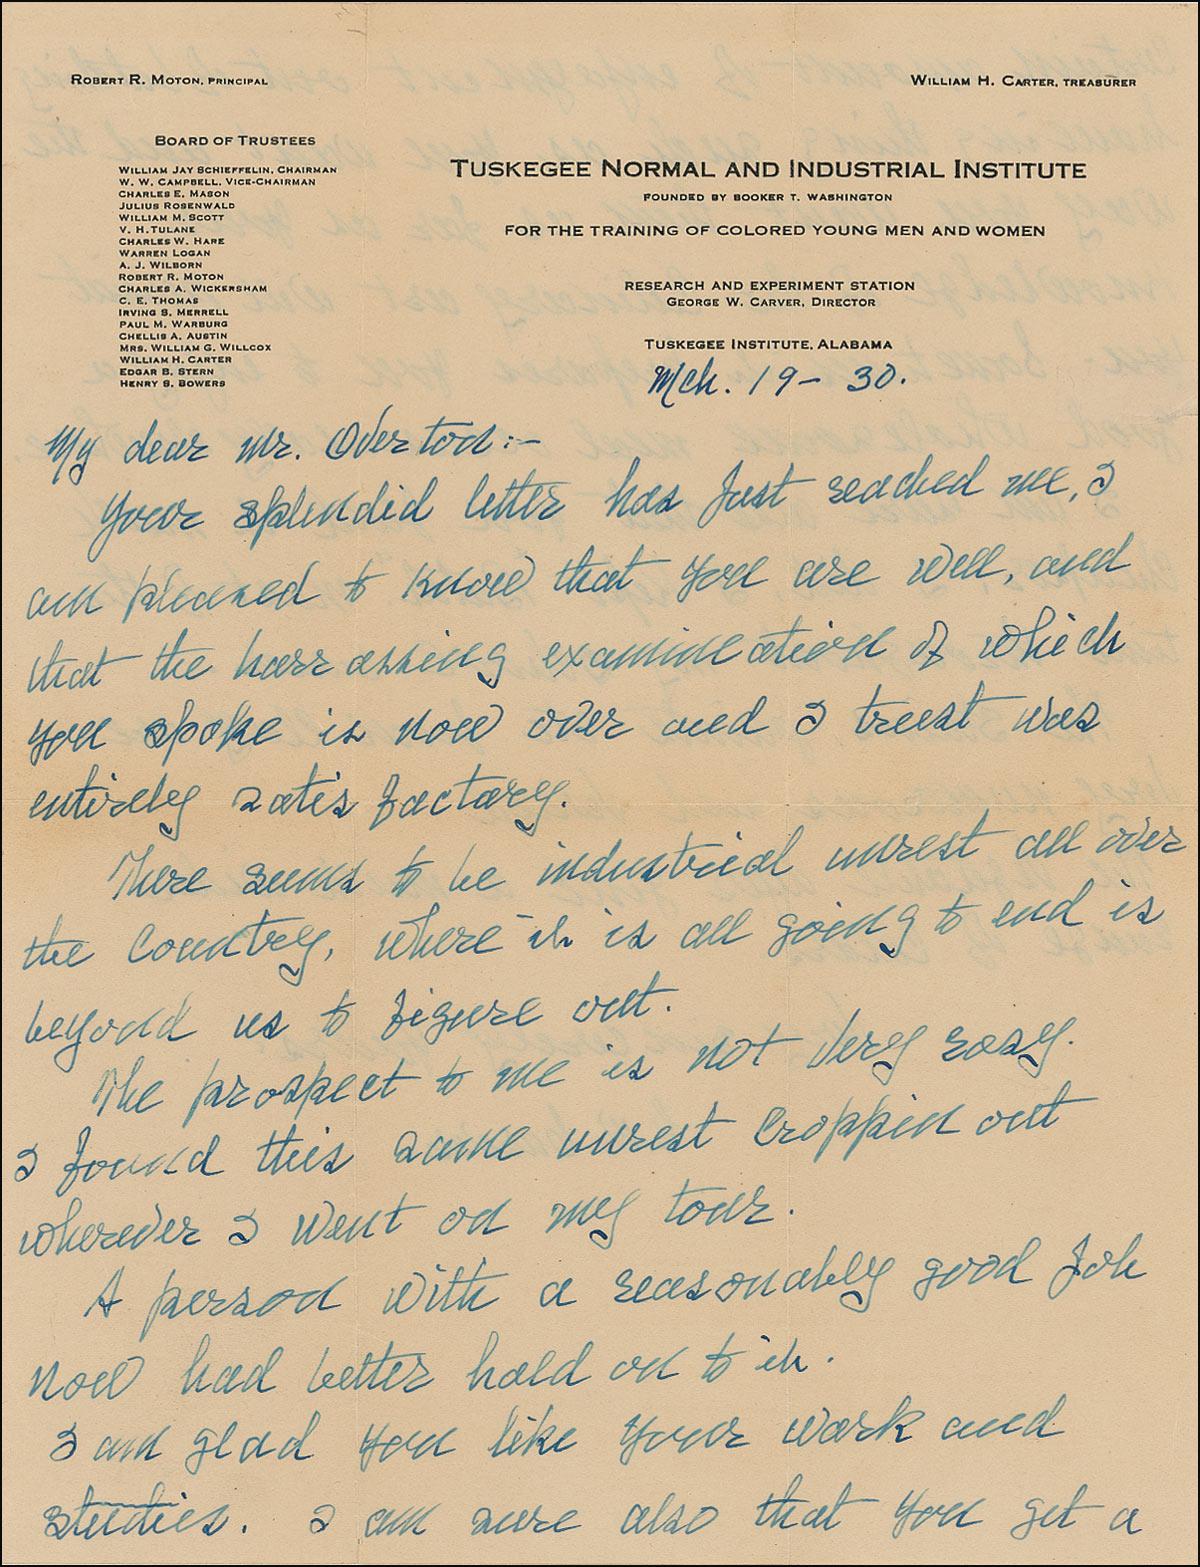 ROBERT R. MOTON, PRINCIPAL
WILLIAM H. CARTER, TREASURER
BOARD OF TRUSTEES
WILLIAM JAY SCHIEFFELIN, CHAIRMAN
W. W. CAMPBELL, VICE-CHAIRMAN
CHARLES E. MASON
JULIUS ROSENWALD
WILLIAM M. SCOTT
V. H. TULANE
CHARLES W. HARE
WARREN LOGAN
A. J. WILBORN
ROBERT R. MOTON
CHARLES A. WICKERSHAM
C. E. THOMAS
IRVING S. MERRELL
PAUL M. WARBURG
CHELLIS A. AUSTIN
MRS. WILLIAM G. WILLCOX
WILLIAM H. CARTER
EDGAR B. STERN
HENRY S. BOWERS
TUSKEGEE NORMAL AND INDUSTRIAL INSTITUTE
FOUNDED BY BOOKER T. WASHINGTON
FOR THE TRAINING OF COLORED YOUNG MEN AND WOMEN
RESEARCH AND EXPERIMENT STATION
GEORGE W. CARVER, DIRECTOR
TUSKEGEE INSTITUTE, ALABAMA
Mch. 19 - 30.
My dear Mr. Overton:-
Your splendid letter has just reached me, I
am pleased to know that you are well, and
that the harrassing examination of which
you spoke is now over and I trust was
entirely satisfactory.
There seems to be industrial unrest all over
the Country, where it is all going to end is
beyond us to figure out.
The prospect to me is not very rosy.
I found this same unrest croppin out
wherever I went on my tour.
A person with a reasonably good job
now had better hold on to it.
I am glad you like your work and
studies. I am sure also that you get a